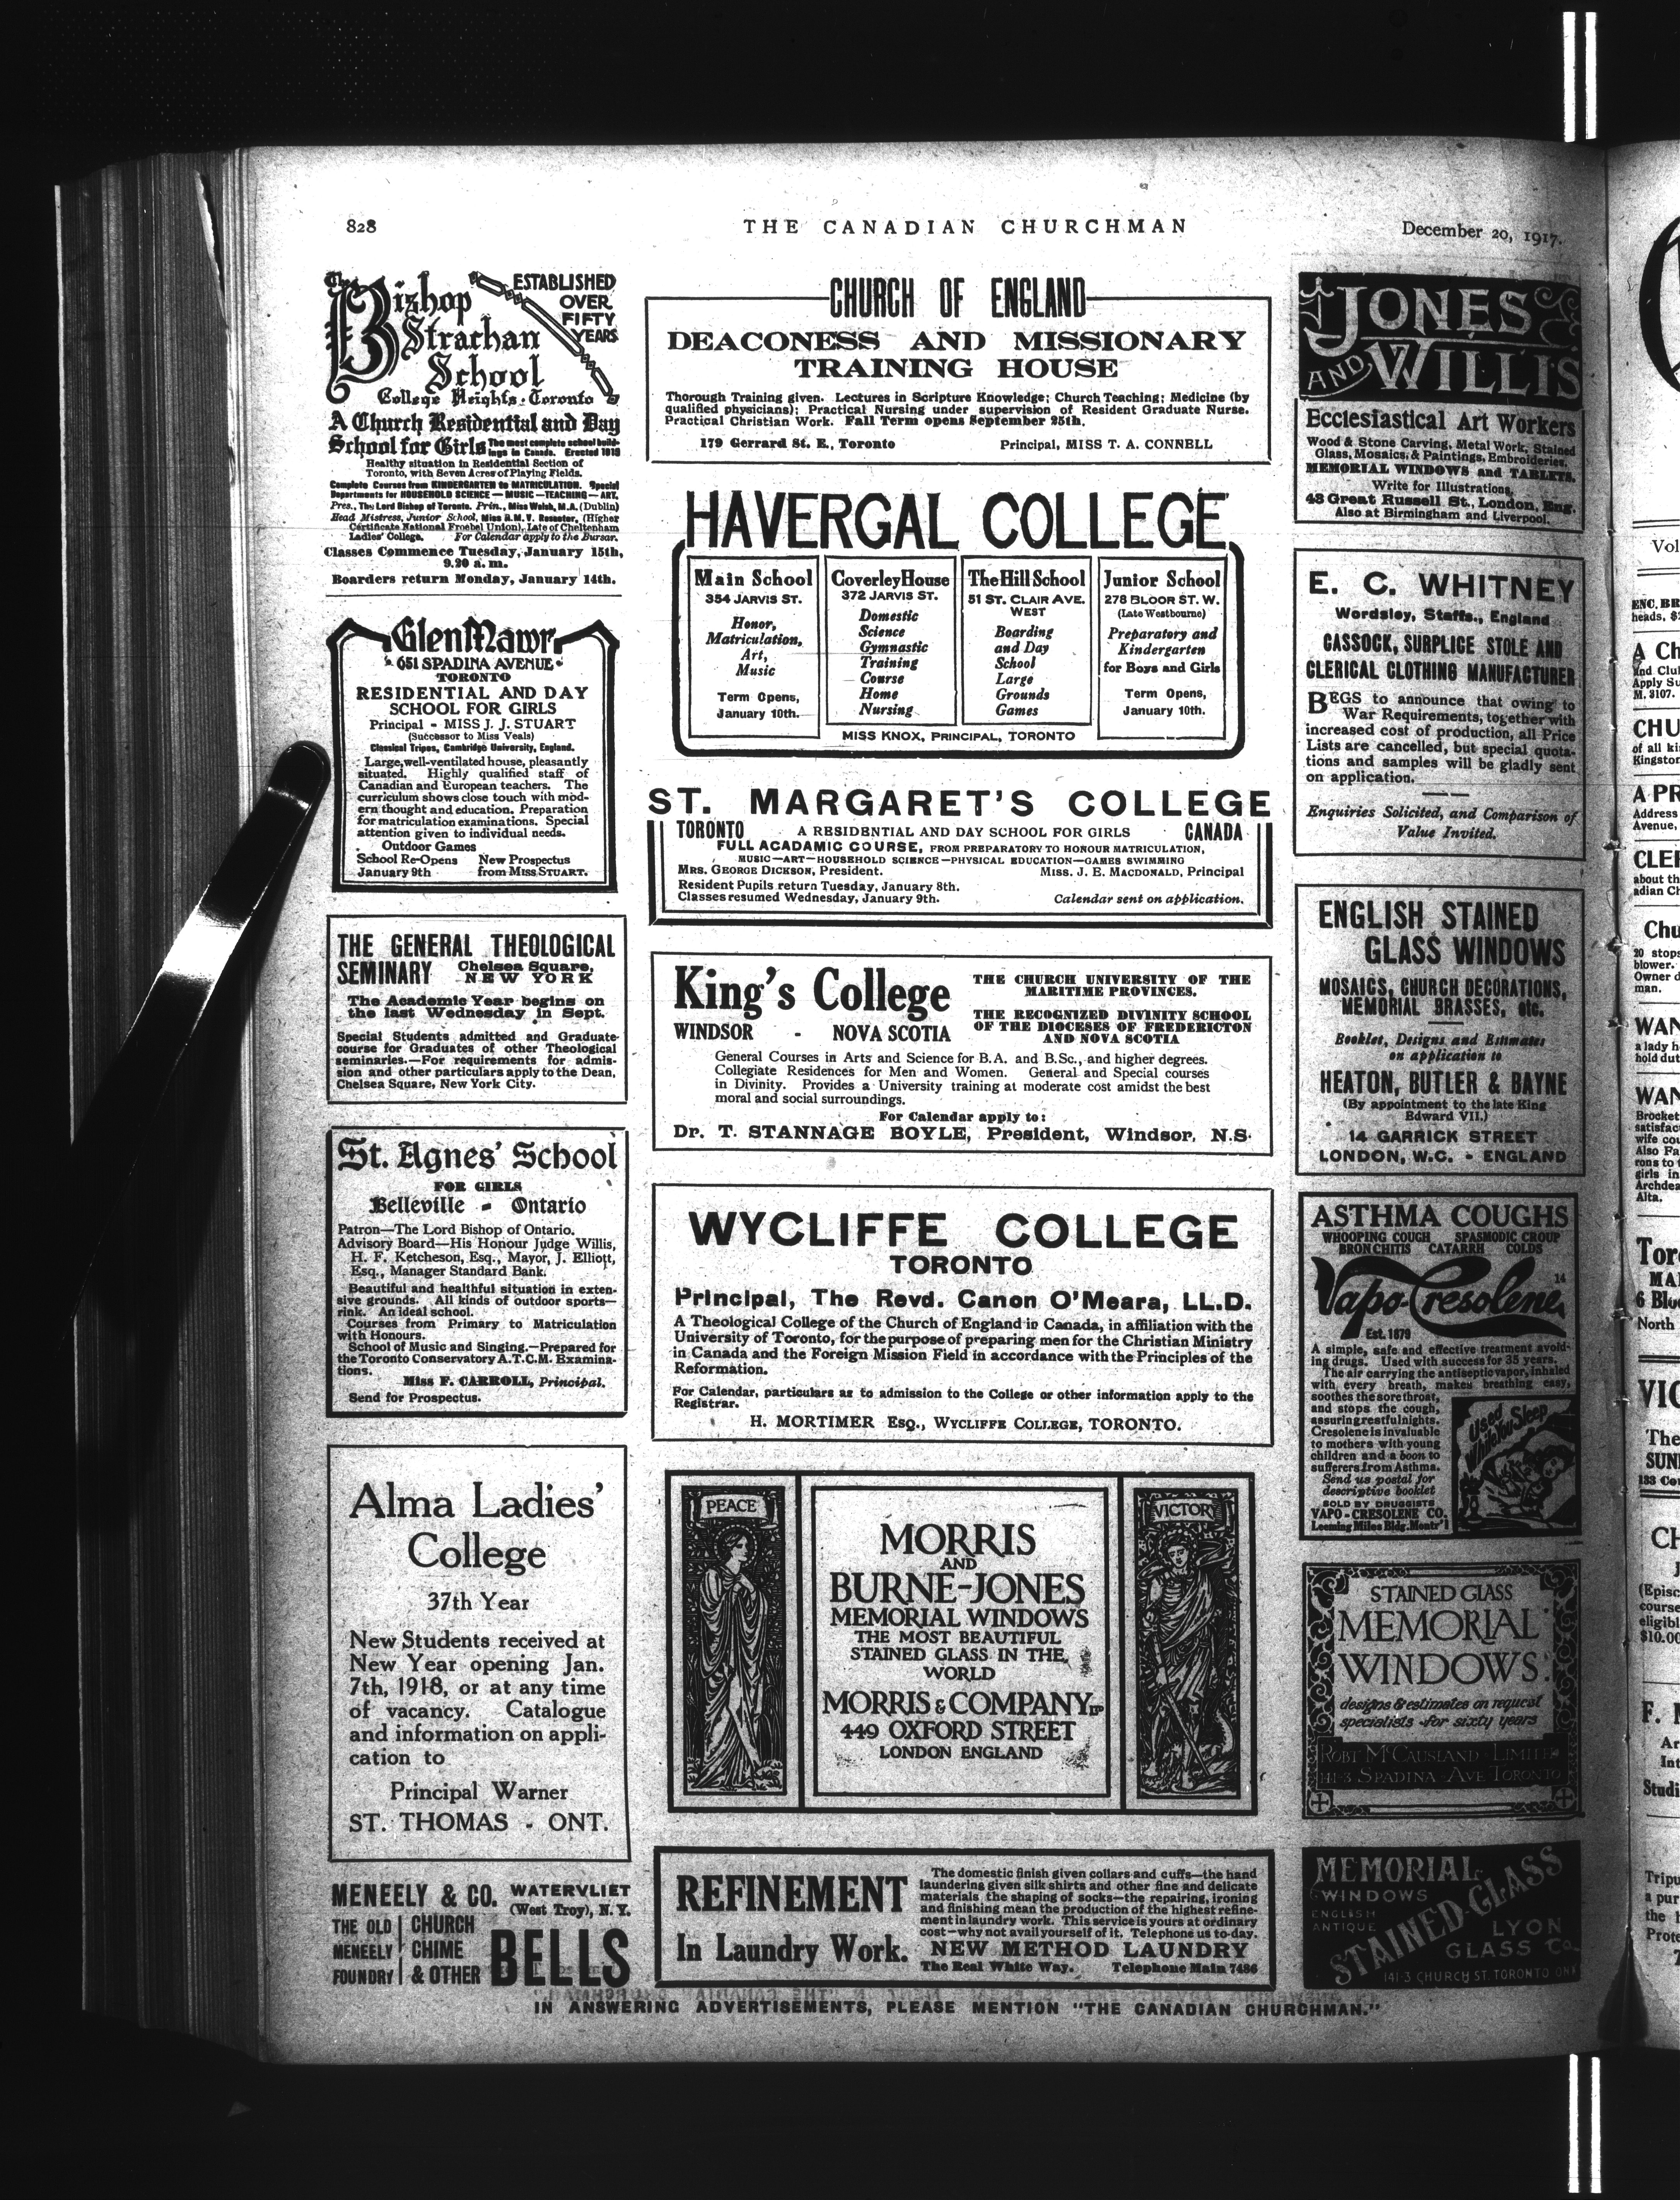 828
THE CANADIAN CHURCHMAN
December 20, 1917.
The Bishop
Strachan
School
ESTABLISHED
OVER
FIFTY
YEARS
College Heights · Toronto
A Church Residential and Day
School for Girls The most complete school build-
ings in Canada. Erected 1913
Healthy situation in Residential Section of
Toronto, with Seven Acres of Playing Fields.
Complete Courses from KINDERGARTEN to MATRICULATION. Special
Departments for HOUSEHOLD SCIENCE—MUSIC—TEACHING—ART.
Pres., The Lord Bishop of Toronto. Prin., Miss Walsh, M.A. (Dublin)
Head Mistress, Junior School, Miss A.M.V. Rosseter, (Higher
Certificate National Froebel Union), Late of Cheltenham
Ladies' College. For Calendar apply to the Bursar.
Classes Commence Tuesday, January 15th,
9.20 a.m.
Boarders return Monday, January 14th.
Glen Mawr
651 SPADINA AVENUE
TORONTO
RESIDENTIAL AND DAY
SCHOOL FOR GIRLS
Principal - MISS J. J. STUART
(Successor to Miss Veals)
Classical Tripos, Cambridge University, England.
Large, well-ventilated house, pleasantly
situated. Highly qualified staff of
Canadian and European teachers. The
curriculum shows close touch with mod-
ern thought and education. Preparation
for matriculation examinations. Special
attention given to individual needs.
Outdoor Games
School Re-Opens New Prospectus
January 9th from MISS STUART.
THE GENERAL THEOLOGICAL
SEMINARY Chelsea Square,
NEW YORK
The Academic Year begins on
the last Wednesday in Sept.
Special Students admitted and Graduate
course for Graduates of other Theological
seminaries.—For requirements for admis-
sion and other particulars apply to the Dean,
Chelsea Square, New York City.
St. Agnes' School
FOR GIRLS
Belleville - Ontario
Patron—The Lord Bishop of Ontario.
Advisory Board—His Honour Judge Willis,
H. F. Ketcheson, Esq., Mayor, J. Elliott,
Esq., Manager Standard Bank.
Beautiful and healthful situation in exten-
sive grounds. All kinds of outdoor sports—
rink. An ideal school.
Courses from Primary to Matriculation
with Honours.
School of Music and Singing.—Prepared for
the Toronto Conservatory A.T.C.M. Examina-
tions.
Miss F. CARROLL, Principal.
Send for Prospectus.
Alma Ladies'
College
37th Year
New Students received at
New Year opening Jan.
7th, 1918, or at any time
of vacancy. Catalogue
and information on appli-
cation to
Principal Warner
ST. THOMAS - ONT.
MENEELY & CO. WATERVLIET
(West Troy), N. Y.
THE OLD
MENEELY
FOUNDRY
CHURCH
CHIME
& OTHER
BELLS
CHURCH OF ENGLAND
DEACONESS AND MISSIONARY
TRAINING HOUSE
Thorough Training given. Lectures in Scripture Knowledge; Church Teaching; Medicine (by
qualified physicians); Practical Nursing under supervision of Resident Graduate Nurse.
Practical Christian Work. Fall Term opens September 25th.
179 Gerrard St. E., Toronto Principal, MISS T. A. CONNELL
HAVERGAL COLLEGE
Main School
354 JARVIS ST.
Honor,
Matriculation,
Art,
Music
Term Opens,
January 10th.
Coverley House
372 JARVIS ST.
Domestic
Science
Gymnastic
Training
Course
Home
Nursing
The Hill School
51 ST. CLAIR AVE.
WEST
Boarding
and Day
School
Large
Grounds
Games
Junior School
278 BLOOR ST. W.
(Late Westbourne)
Preparatory and
Kindergarten
for Boys and Girls
Term Opens,
January 10th.
MISS KNOX, PRINCIPAL, TORONTO
ST. MARGARET'S COLLEGE
TORONTO A RESIDENTIAL AND DAY SCHOOL FOR GIRLS CANADA
FULL ACADAMIC COURSE, FROM PREPARATORY TO HONOUR MATRICULATION,
MUSIC—ART—HOUSEHOLD SCIENCE—PHYSICAL EDUCATION—GAMES SWIMMING
MRS. GEORGE DICKSON, President. MISS. J. E. MACDONALD, Principal
Resident Pupils return Tuesday, January 8th.
Classes resumed Wednesday, January 9th. Calendar sent on application.
King's College
WINDSOR - NOVA SCOTIA
THE CHURCH UNIVERSITY OF THE
MARITIME PROVINCES.
THE RECOGNIZED DIVINITY SCHOOL
OF THE DIOCESES OF FREDERICTON
AND NOVA SCOTIA
General Courses in Arts and Science for B.A. and B.Sc., and higher degrees.
Collegiate Residences for Men and Women. General and Special courses
in Divinity. Provides a University training at moderate cost amidst the best
moral and social surroundings.
For Calendar apply to:
Dr. T. STANNAGE BOYLE, President, Windsor, N.S.
WYCLIFFE COLLEGE
TORONTO
Principal, The Revd. Canon O'Meara, LL.D.
A Theological College of the Church of England in Canada, in affiliation with the
University of Toronto, for the purpose of preparing men for the Christian Ministry
in Canada and the Foreign Mission Field in accordance with the Principles of the
Reformation.
For Calendar, particulars as to admission to the College or other information apply to the
Registrar.
H. MORTIMER ESQ., WYCLIFFE COLLEGE, TORONTO.
PEACE
MORRIS
AND
BURNE-JONES
MEMORIAL WINDOWS
THE MOST BEAUTIFUL
STAINED GLASS IN THE
WORLD
MORRIS & COMPANY LTD
449 OXFORD STREET
LONDON ENGLAND
VICTORY
REFINEMENT
In Laundry Work.
The domestic finish given collars and cuffs—the hand
laundering given silk shirts and other fine and delicate
materials the shaping of socks—the repairing, ironing
and finishing mean the production of the highest refine-
ment in laundry work. This service is yours at ordinary
cost—why not avail yourself of it. Telephone us to-day.
NEW METHOD LAUNDRY
The Real White Way. Telephone Main 7486
JONES
AND WILLIS
Ecclesiastical Art Workers
Wood & Stone Carving, Metal Work, Stained
Glass, Mosaics, & Paintings, Embroideries.
MEMORIAL WINDOWS and TABLETS.
Write for Illustrations,
43 Great Russell St., London, Eng.
Also at Birmingham and Liverpool.
E. C. WHITNEY
Wordsley, Staffs., England
CASSOCK, SURPLICE STOLE AND
CLERICAL CLOTHING MANUFACTURER
BEGS to announce that owing to
War Requirements, together with
increased cost of production, all Price
Lists are cancelled, but special quota-
tions and samples will be gladly sent
on application.
Enquiries Solicited, and Comparison of
Value Invited.
ENGLISH STAINED
GLASS WINDOWS
MOSAICS, CHURCH DECORATIONS,
MEMORIAL BRASSES, etc.
Booklet, Designs and Estimates
on application to
HEATON, BUTLER & BAYNE
(By appointment to the late King
Edward VII.)
14 GARRICK STREET
LONDON, W.C. - ENGLAND
ASTHMA COUGHS
WHOOPING COUGH SPASMODIC CROUP
BRONCHITIS CATARRH COLDS
14
Vapo-Cresolene
Est. 1879
A simple, safe and effective treatment avoid-
ing drugs. Used with success for 35 years.
The air carrying the antiseptic vapor, inhaled
with every breath, makes breathing easy,
soothes the sore throat,
and stops the cough,
assuring restful nights.
Cresolene is invaluable
to mothers with young
children and a boon to
sufferers from Asthma.
Send us postal for
descriptive booklet
SOLD BY DRUGGISTS
VAPO-CRESOLENE CO.
Leeming Miles Bldg. Montr'l
Used
While You Sleep
STAINED GLASS
MEMORIAL
WINDOWS
designs & estimates on request
specialists for sixty years
ROBT McCAUSLAND LIMITED
141-3 SPADINA AVE TORONTO
MEMORIAL
WINDOWS
ENGLISH
ANTIQUE
STAINED-GLASS
LYON
GLASS Co.
141-3 CHURCH ST. TORONTO ONT
IN ANSWERING ADVERTISEMENTS, PLEASE MENTION "THE CANADIAN CHURCHMAN."